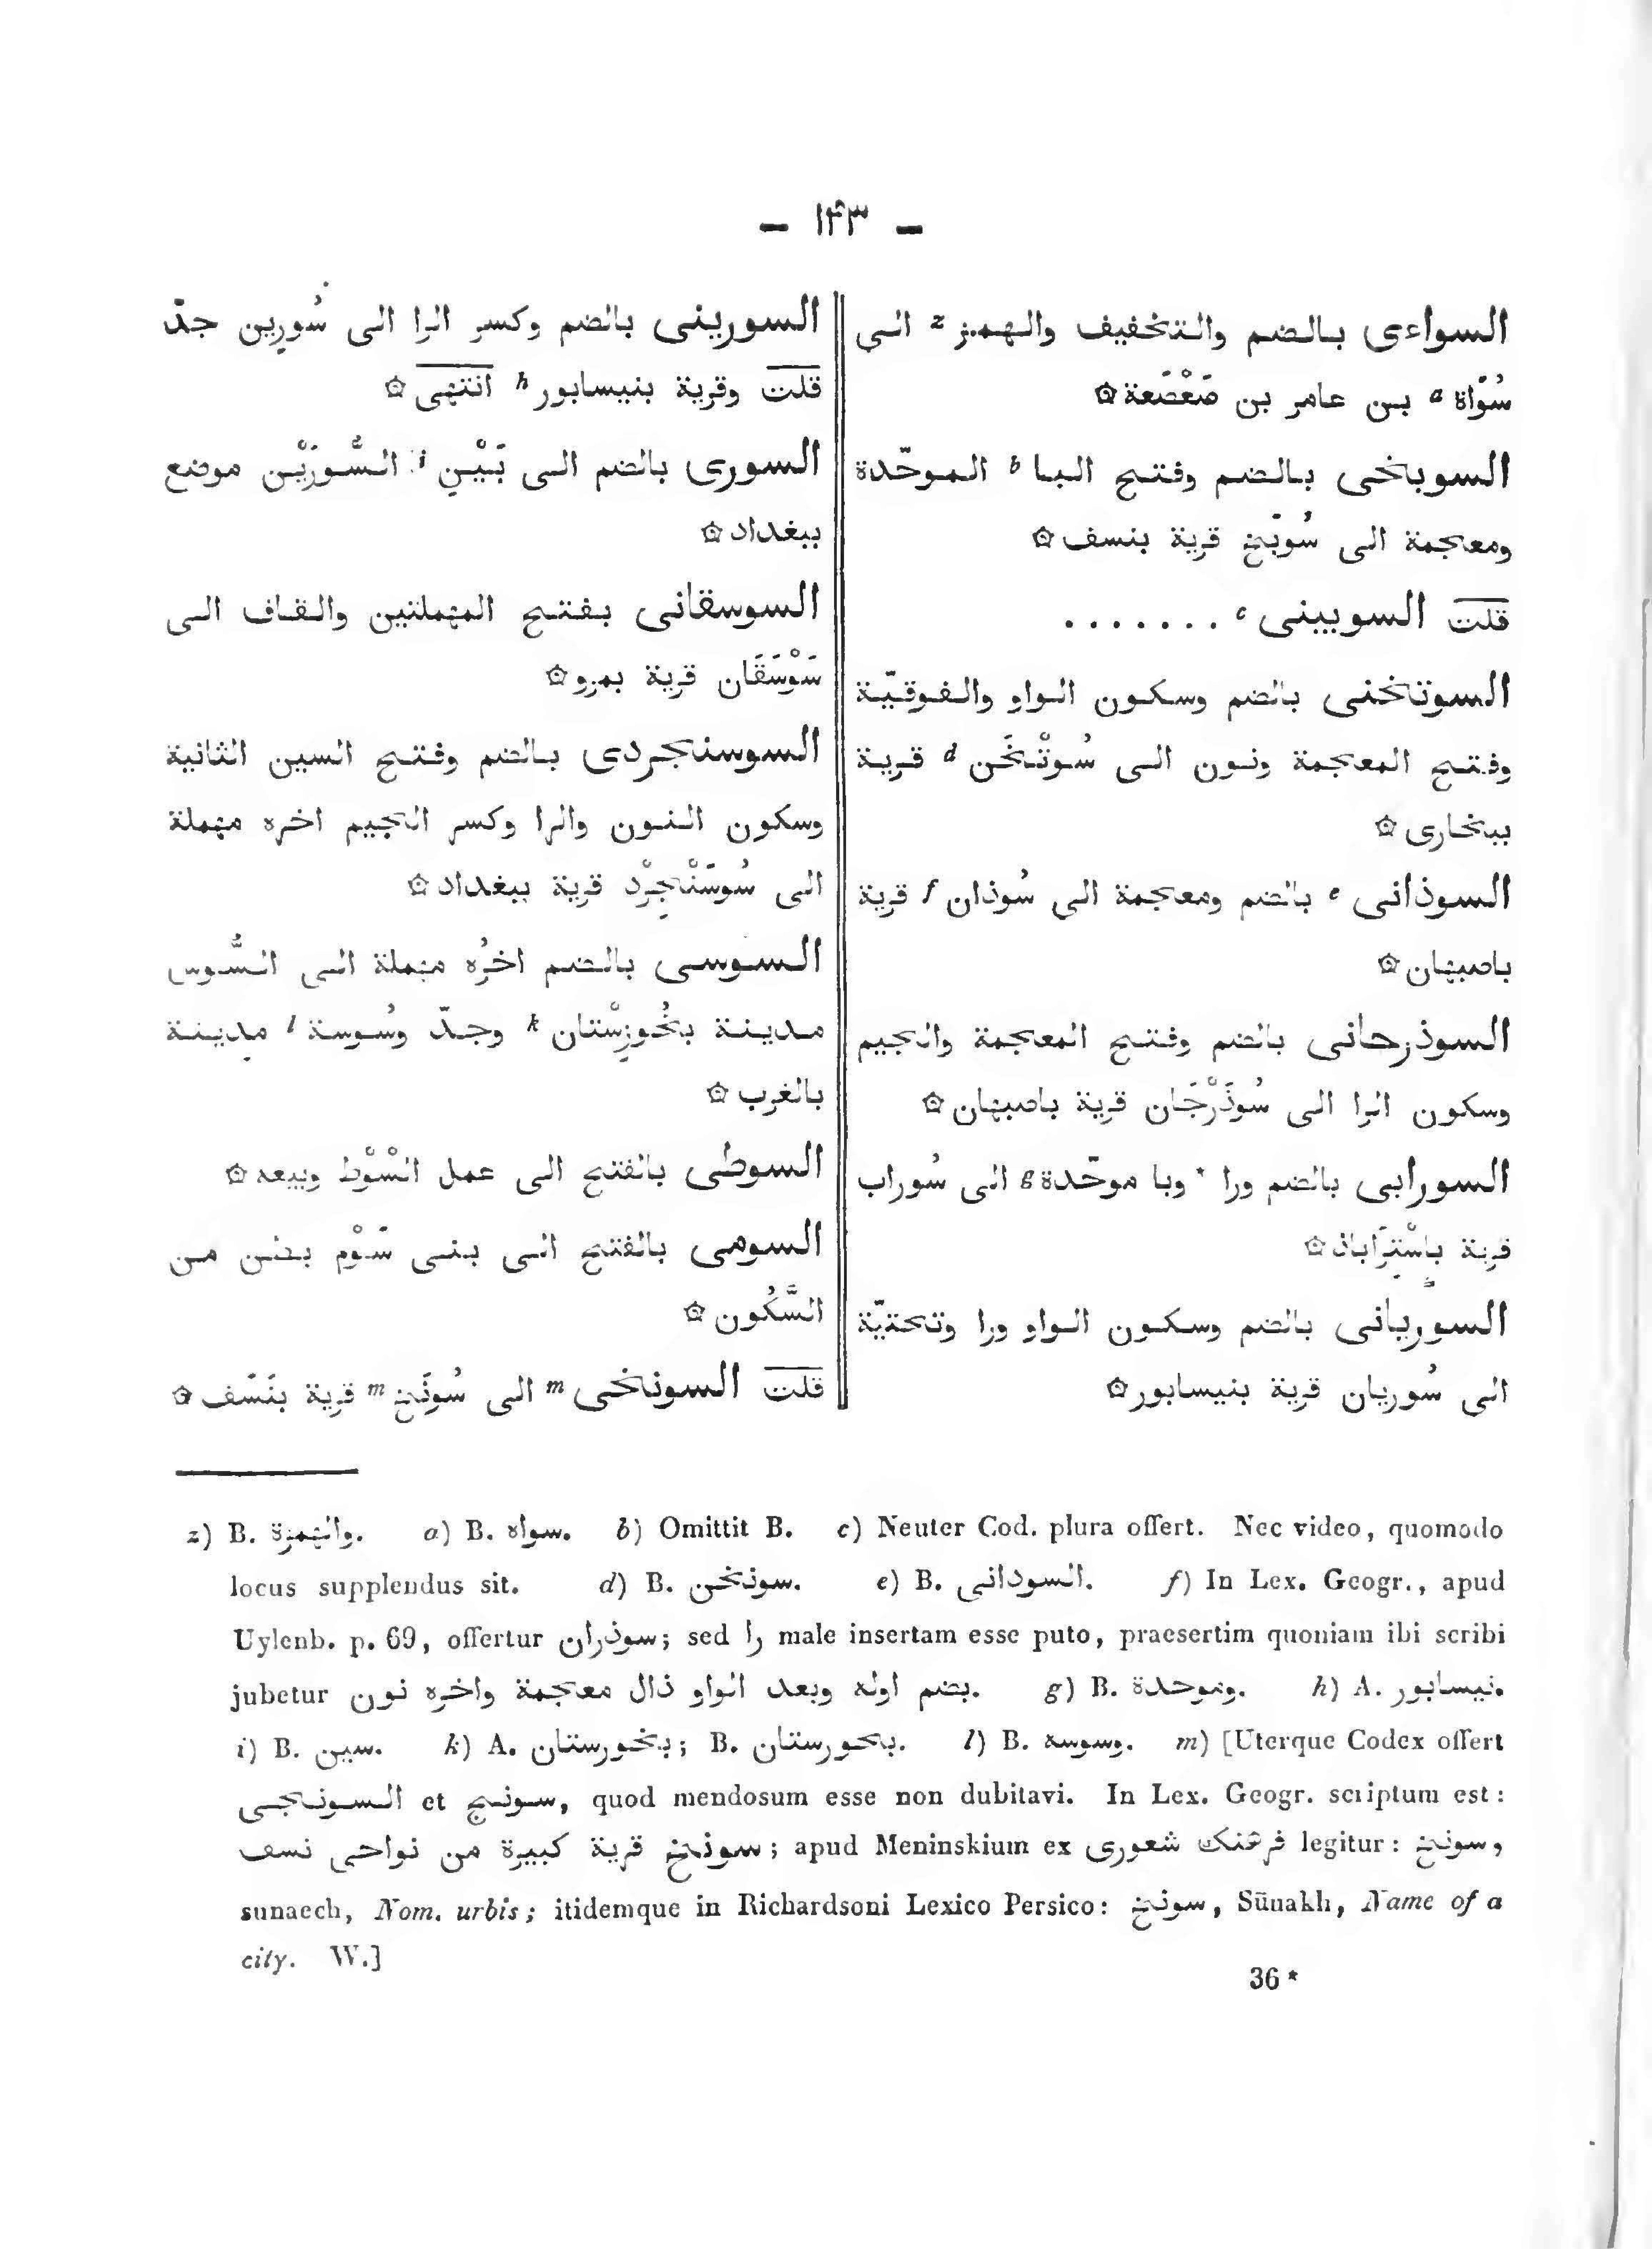 — ١۴٣ —
السواءى بالضم والتخفيف والهمز z الى
سُوَاة a بن عامر بن صَعْصَعة ۞
السوبخى بالضم وفتح البا b الموحّدة
ومعجمة الى سُوبَخ قرية بنسف ۞
قلت السوبينى c . . . . . . .
السوتخنى بالضم وسكون الواو والفوقيّة
وفتح المعجمة ونون الى سُوتْخَن d قرية
ببخارى ۞
السوذانى e بالضم ومعجمة الى سُوذان f قرية
باصبهان ۞
السوذرجانى بالضم وفتح المعجمة والجيم
وسكون الرا الى سُوذَرْجَان قرية باصبهان ۞
السورابى بالضم ورا * وبا موحّدة g الى سُوراب
قرية باسْتِرَاباذ ۞
السوريانى بالضم وسكون الواو ورا وتحتيّة
الى سُوريان قرية بنيسابور ۞
السورينى بالضم وكسر الرا الى سُورِين جدّ
قلت وقرية بنيسابور h انتهى ۞
السورى بالضم الى بَيْن i السُّورَيْن موضع
ببغداد ۞
السوسقانى بفتح المهملتين والقاف الى
سَوْسَقَان قرية بمرو ۞
السوسنجردى بالضم وفتح السين الثانية
وسكون النون والرا وكسر الجيم اخره مهملة
الى سُوسَنْجِرْد قرية ببغداد ۞
السوسى بالضم اخرُه مهملة الى السُّوس
مدينة بخُوزِسْتان k وجدّ وسُوسة l مدينة
بالغرب ۞
السوطى بالفتح الى عمل السْوْط وبيعه ۞
السومى بالفتح الى بنى سَوْم بطن من
السَّكُون ۞
قلت السونخى m الى سُونَخ m قرية بنَسَف ۞
z) B. والهمزة. a) B. سواه. b) Omittit B. c) Neuter Cod. plura offert. Nec video, quomodo
locus supplendus sit. d) B. سونخن. e) B. السودانى. f) In Lex. Geogr., apud
Uylenb. p. 69, offertur سوذران; sed را male insertam esse puto, praesertim quoniam ibi scribi
jubetur بضم اوله وبعد الواو ذال معجمة واخره نون. g) B. وموحدة. h) A. نيسابور.
i) B. سين. k) A. بخورستان; B. بحورستان. l) B. وسوسه. m) [Uterque Codex offert
السونجى et سونج, quod mendosum esse non dubitavi. In Lex. Geogr. scriptum est:
سونخ قرية كبيرة من نواحى نسف; apud Meninskium ex فرهنك شعورى legitur: سونخ,
sunaech, Nom. urbis; itidemque in Richardsoni Lexico Persico: سونخ, Sūnakh, Name of a
city. W.]
36 *